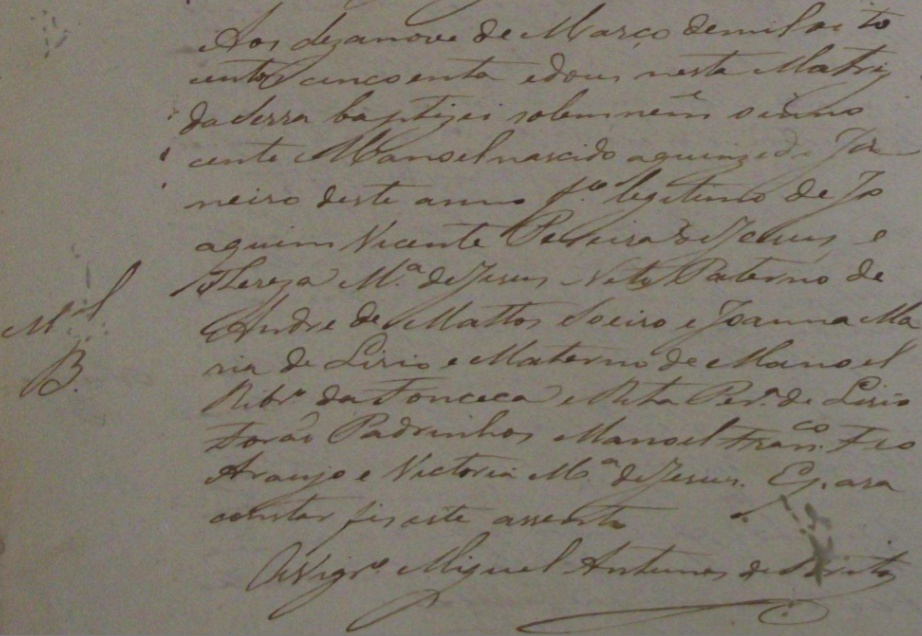 Aos dezanove de Março de mil oito
centos cincoenta e dous nesta Matriz
da Serra baptizei solemnem̃ o inno
cente Manoel nascido a quinze de Ja
neiro deste anno f.º legitimo de Jo
aquim Vicente Pereira de Jesus e
Thereza M.ª de Jesus Neto Paterno de
Andre de Mattos Soeiro e Joanna Ma
ria de Lirio e Materno de Manoel
Ribr.º da Fonceca e Rita Per.ª de Lirio
Forão Padrinhos Manoel Fran.co
Araujo e Victoria M.ª de Jesus. E para
constar fis este assento
O Vigr.º Miguel Antunes de Brito
M.el
B.